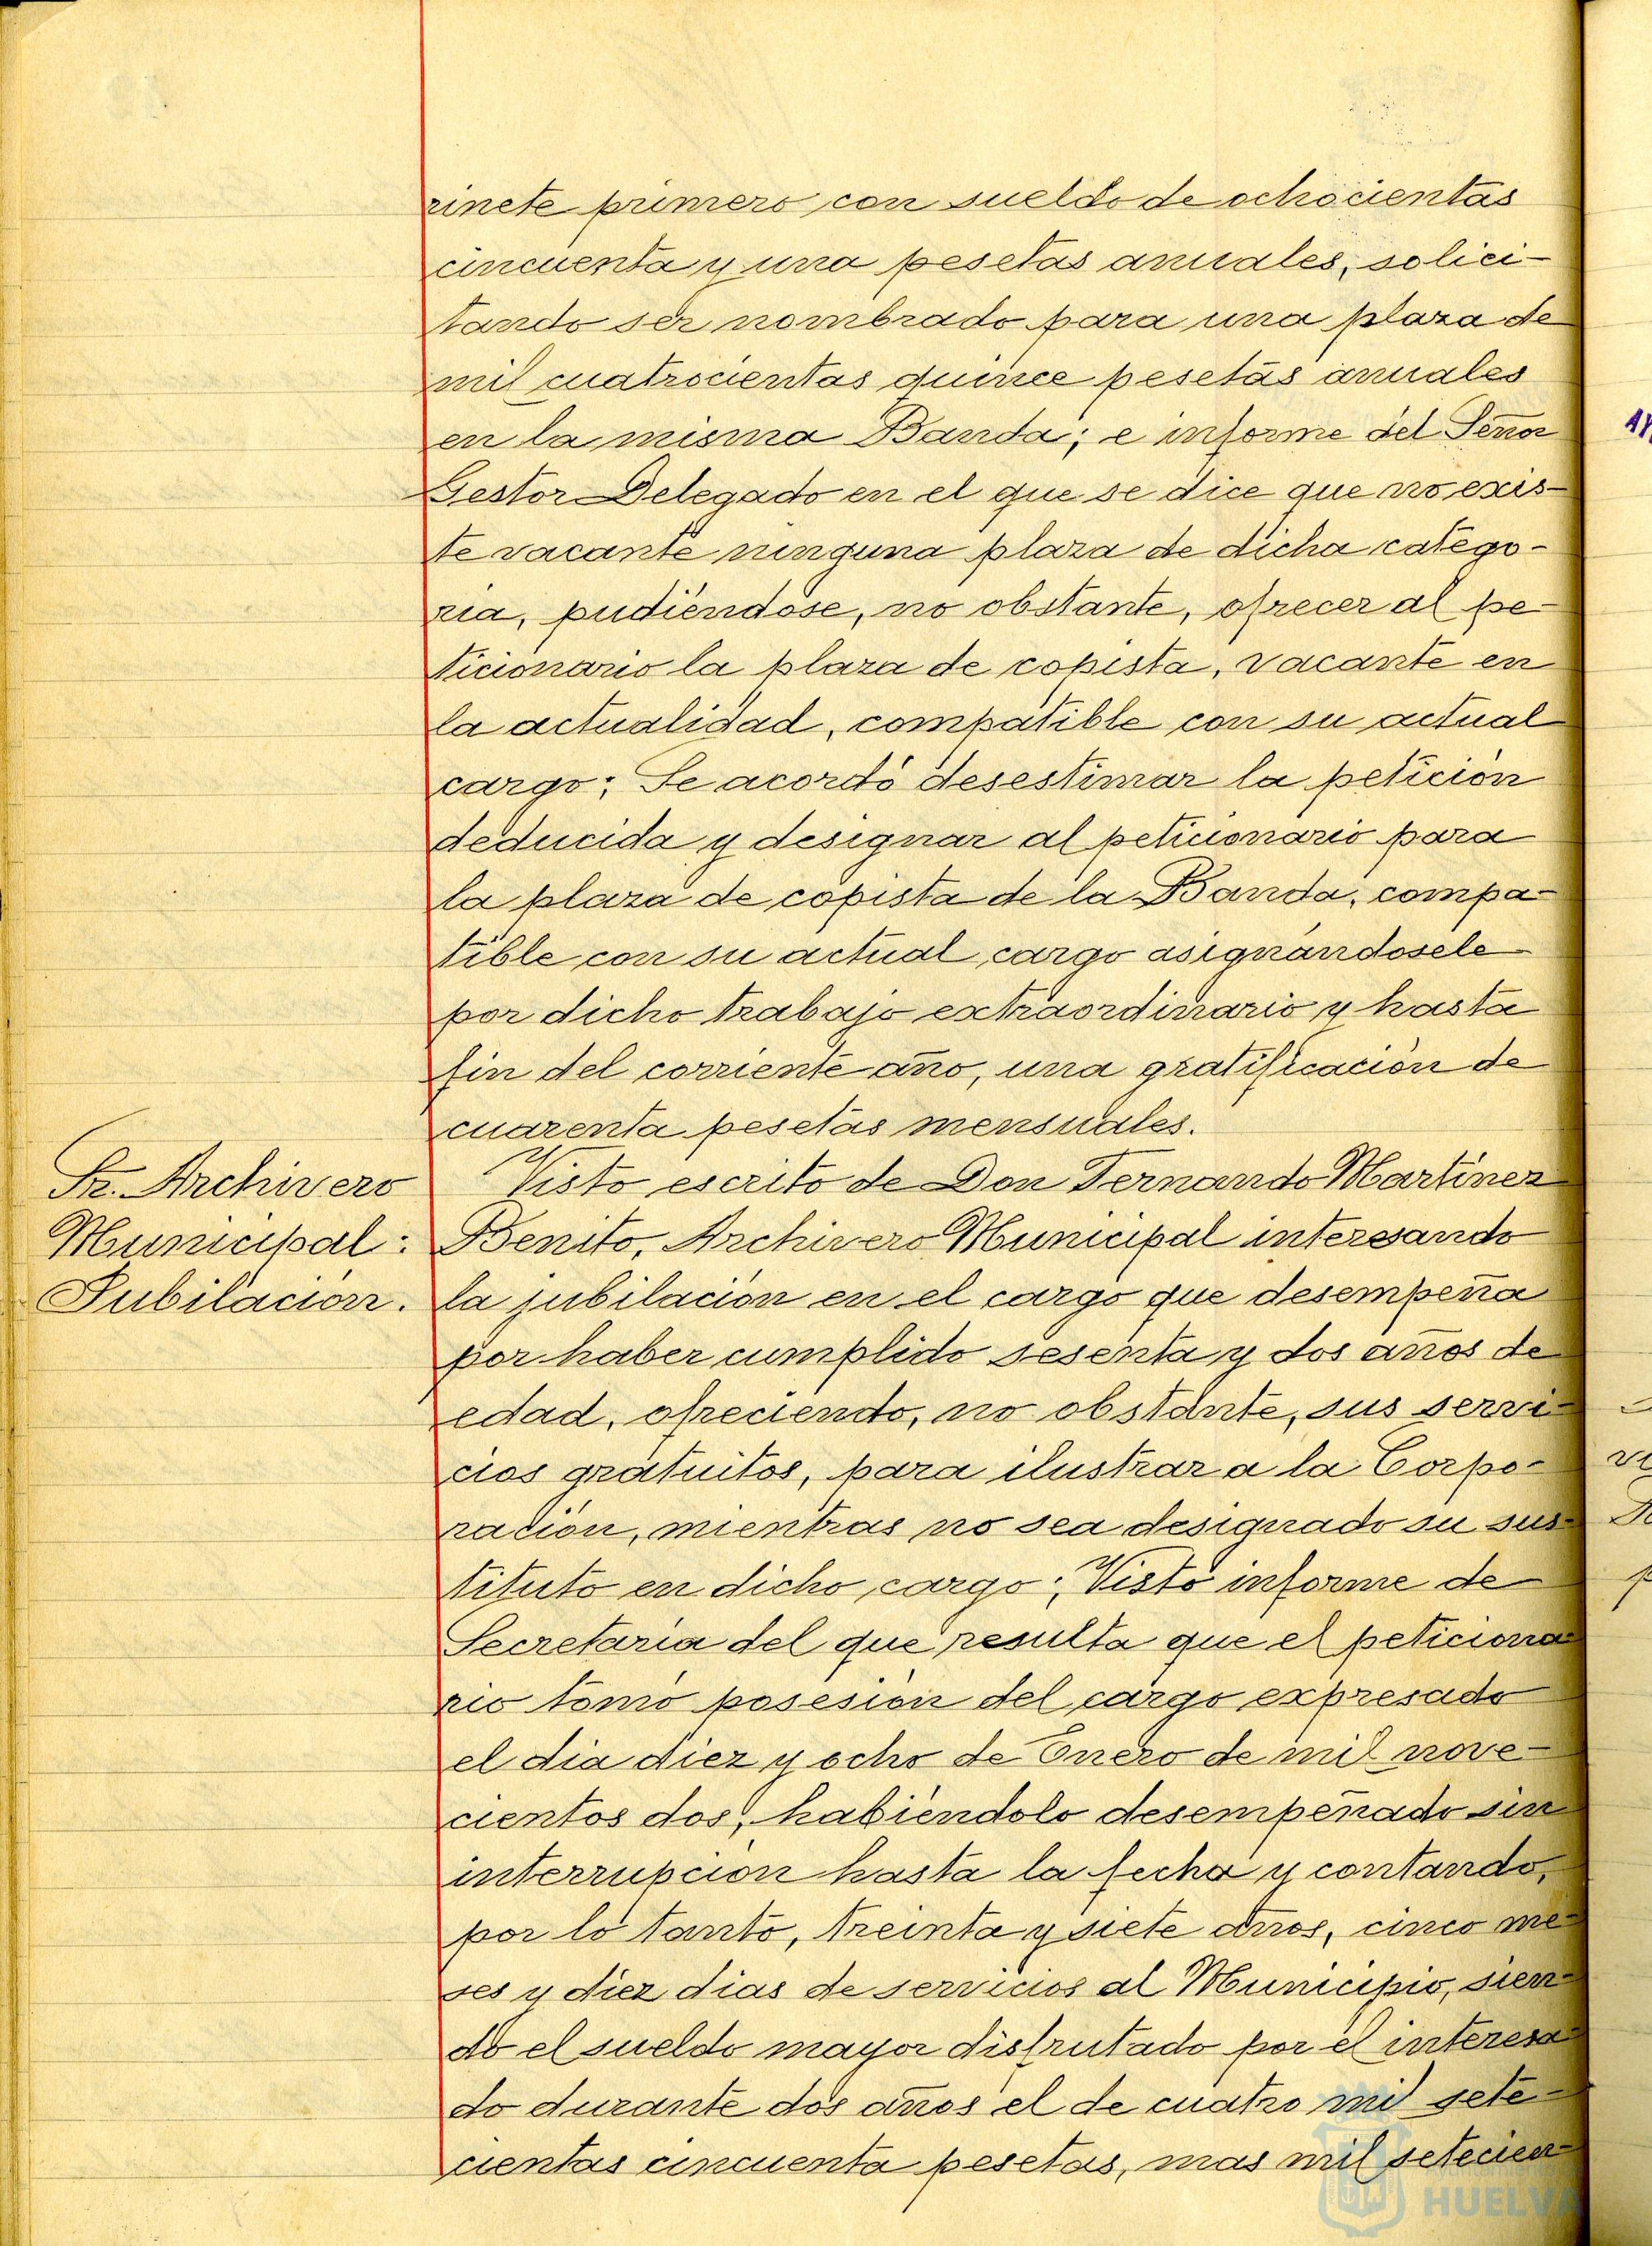 rinete primero con sueldo de ochocientas
cincuenta y una pesetas anuales, solici-
tando ser nombrado para una plaza de
mil cuatrocientas quince pesetas anuales
en la misma Banda; e informe del Señor
Gestor Delegado en el que se dice que no exis-
te vacante ninguna plaza de dicha catego-
ria, pudiéndose, no obstante, ofrecer al pe-
ticionario la plaza de copista, vacante en
la actualidad, compatible con su actual
cargo; Se acordó desestimar la petición
deducida y designar al peticionario para
la plaza de copista de la Banda, compa-
tible con su actual cargo asignándosele
por dicho trabajo extraordinario y hasta
fin del corriente año, una gratificación de
cuarenta pesetas mensuales.
Sr. Archivero
Municipal:
Jubilación.
Visto escrito de Don Fernando Martínez
Benito, Archivero Municipal interesando
la jubilación en el cargo que desempeña
por haber cumplido sesenta y dos años de
edad, ofreciendo, no obstante, sus servi-
cios gratuitos, para ilustrar a la Corpo-
ración, mientras no sea designado su sus-
tituto en dicho cargo; Visto informe de
Secretaría del que resulta que el peticiona-
rio tomó posesión del cargo expresado
el dia diez y ocho de Enero de mil nove-
cientos dos, habiéndolo desempeñado sin
interrupción hasta la fecha y contando,
por lo tanto, treinta y siete años, cinco me-
ses y diez dias de servicios al Municipio, sien-
do el sueldo mayor disfrutado por el interesa-
do durante dos años el de cuatro mil sete-
cientas cincuenta pesetas, mas mil setecien-
HUELVA